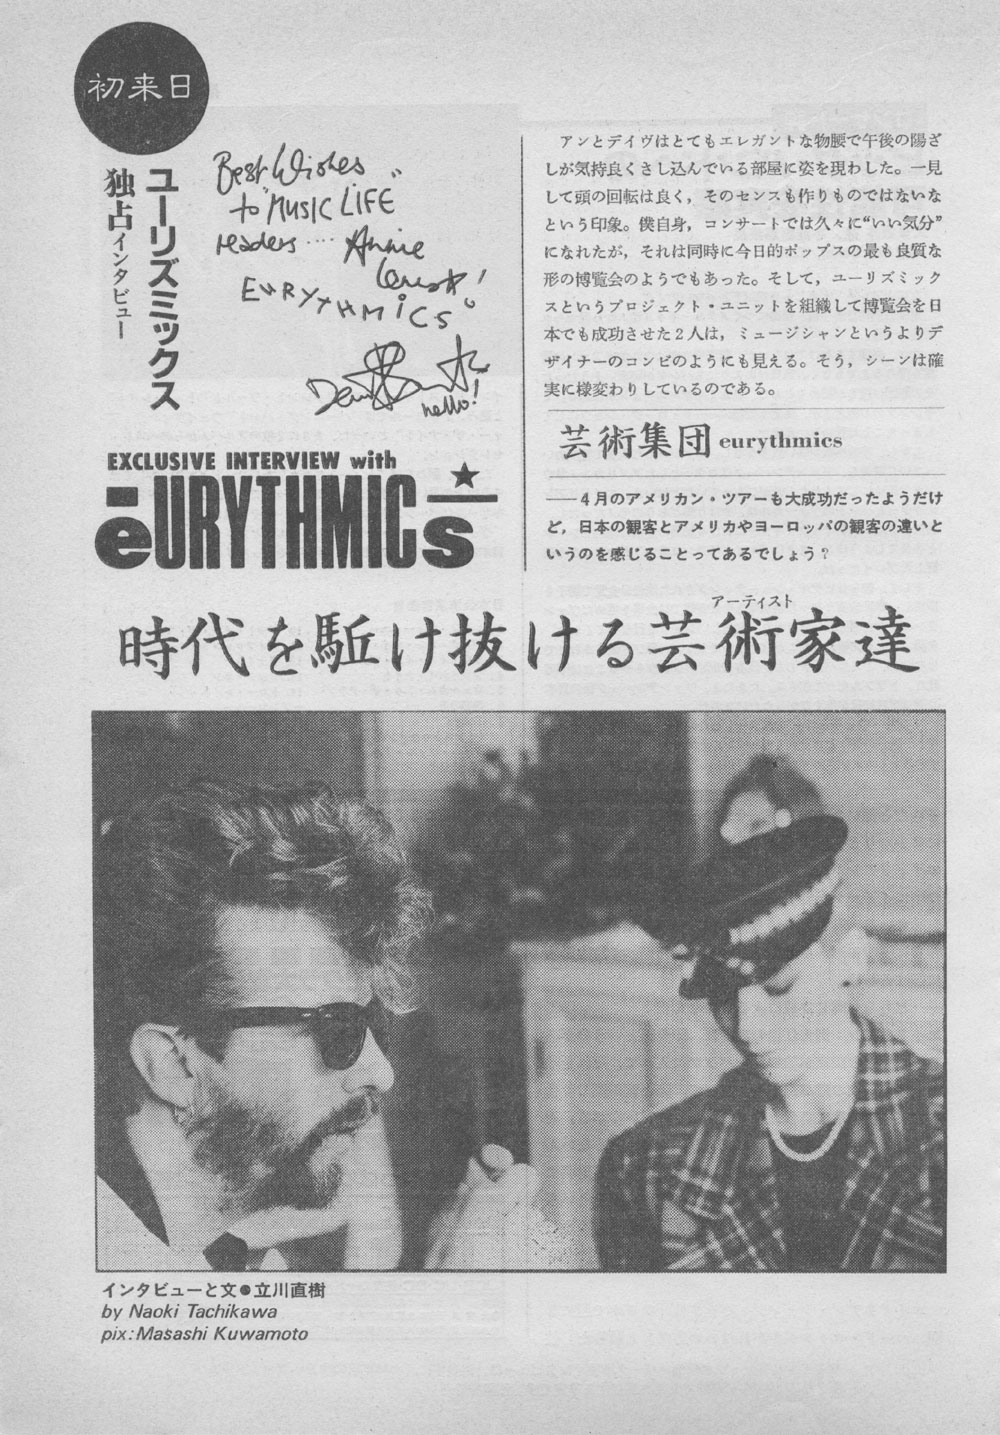 初来日
ユーリズミックス
独占インタビュー
Best Wishes
to "MUSIC LIFE"
readers .... Annie
Lennox!
EURYTHMICS
hello!
アンとデイヴはとてもエレガントな物腰で午後の陽ざ
しが気持良くさし込んでいる部屋に姿を現わした。一見
して頭の回転は良く，そのセンスも作りものではないな
という印象。僕自身，コンサートでは久々に“いい気分”
になれたが，それは同時に今日的ポップスの最も良質な
形の博覧会のようでもあった。そして，ユーリズミック
スというプロジェクト・ユニットを組織して博覧会を日
本でも成功させた２人は，ミュージシャンというよりデ
ザイナーのコンビのようにも見える。そう，シーンは確
実に様変わりしているのである。
芸術集団 eurythmics
――４月のアメリカン・ツアーも大成功だったようだけ
ど，日本の観客とアメリカやヨーロッパの観客の違いと
いうのを感じることってあるでしょう？
EXCLUSIVE INTERVIEW with
eURYTHMICs
アーティスト
時代を駈け抜ける芸術家達
インタビューと文●立川直樹
by Naoki Tachikawa
pix:Masashi Kuwamoto